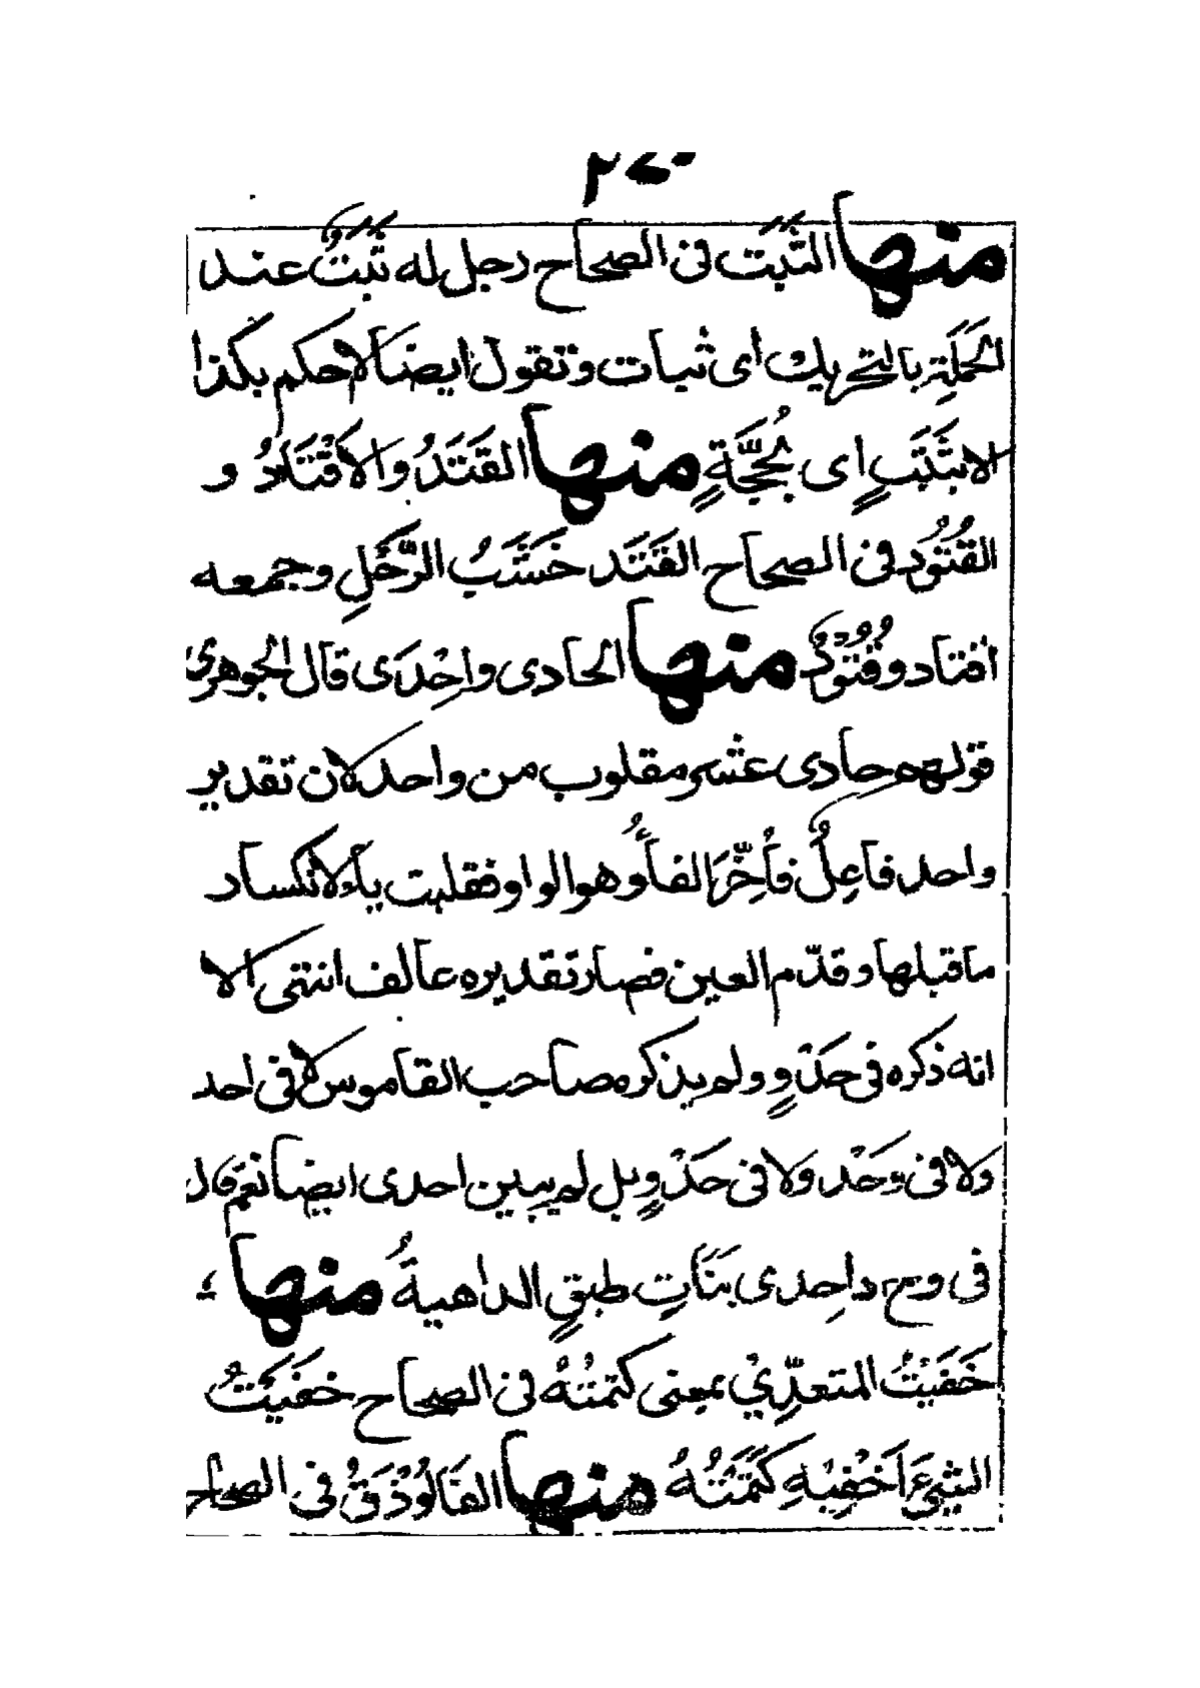 منها الثَّبَت فى الصحاح رجل له ثَبَتٌ عند
الحَمْلَةِ بالتحريك اى ثبات وتقول ايضا لا احكم بكذا
الا بثَبَتٍ اى بحُجَّةٍ منها القَتَدُ والاَقْتَادُ و
القُتُوُد فى الصحاح القَتَد خَشَبُ الرَّحْلِ وجمعه
اقتاد وقُتُوُد منها الحادى واِحْدَى قال الجوهرى
قولهم حادى عشر مقلوب من واحد لان تقدير
واحد فاعِلٌ فأُخِّرَ الفاُء وهو الواو فقلبت ياء لانكسار
ما قبلها وقدّم العين فصار تقديره عالف انتهى الا
انه ذكره فى حَدْوٍ ولم يذكره صاحب القاموس لا فى احد
ولا فى وَحْد ولا فى حَدْوٍ بل لم يبين احدى ايضا نعم قال
فى وح د اِحدى بَنَاتِ طبقٍ الداهيةُ منها ؛
خَفَيْتُ المتعدِّىْ بمعنى كتمتُهُ فى الصحاح خفَيَتُ
الشئَ اَخْفِيْهِ كَتَمْتُهُ منها الفَالُوْذَقُ فى الصحاح